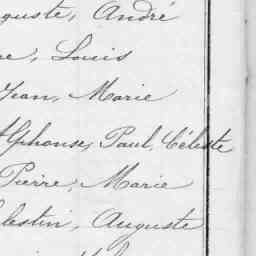 guste, André
re, Louis
Jean, Marie
Alphonse, Paul, Céleste
Pierre, Marie
élestin, Auguste